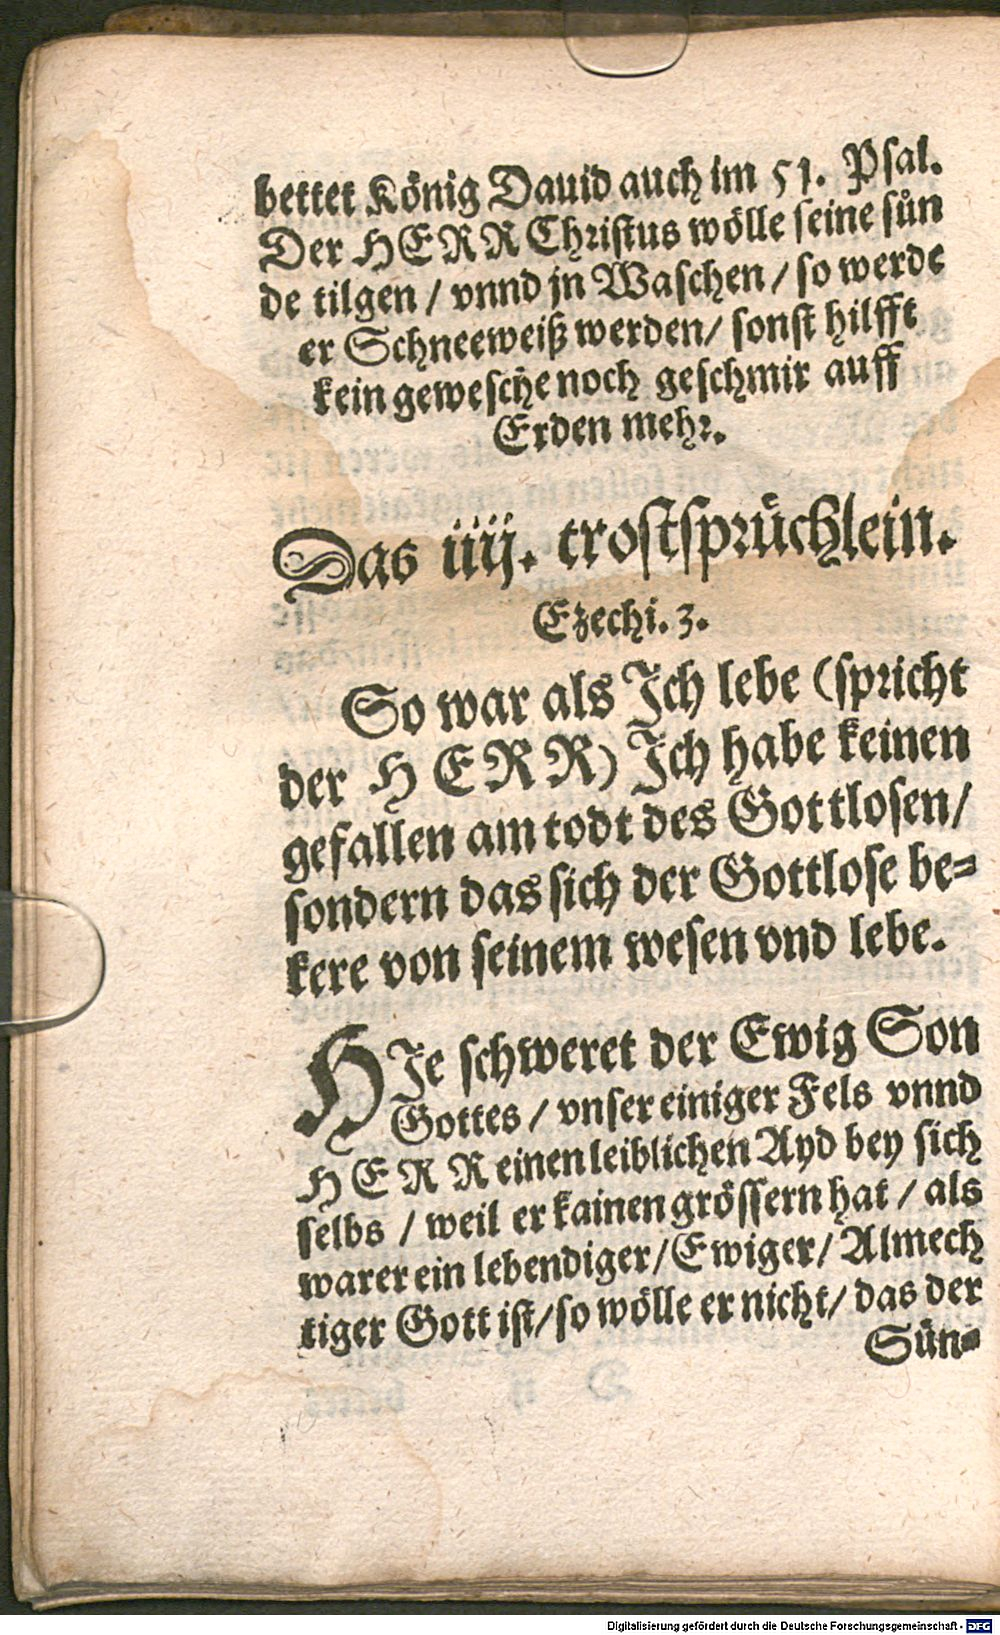 bettet König Dauid auch im 51. Psal.
Der HERR Christus wölle seine sün
de tilgen / vnnd jn Waschen / so werde
er Schneeweiß werden / sonst hilfft
kein gewesche noch geschmir auff
Erden mehr.
Das iiij. trostsprüchlein.
Ezechi. 3.
So war als Ich lebe (spricht
der HERR) Ich habe keinen
gefallen am todt des Gottlosen /
sondern das sich der Gottlose be=
kere von seinem wesen vnd lebe.
HIe schweret der Ewig Son
Gottes / vnser einiger Fels vnnd
HERR einen leiblichen Ayd bey sich
selbs / weil er kainen grössern hat / als
war er ein lebendiger / Ewiger / Almech
tiger Gott ist / so wölle er nicht / das der
Sün=
Digitalisierung gefördert durch die Deutsche Forschungsgemeinschaft - DFG